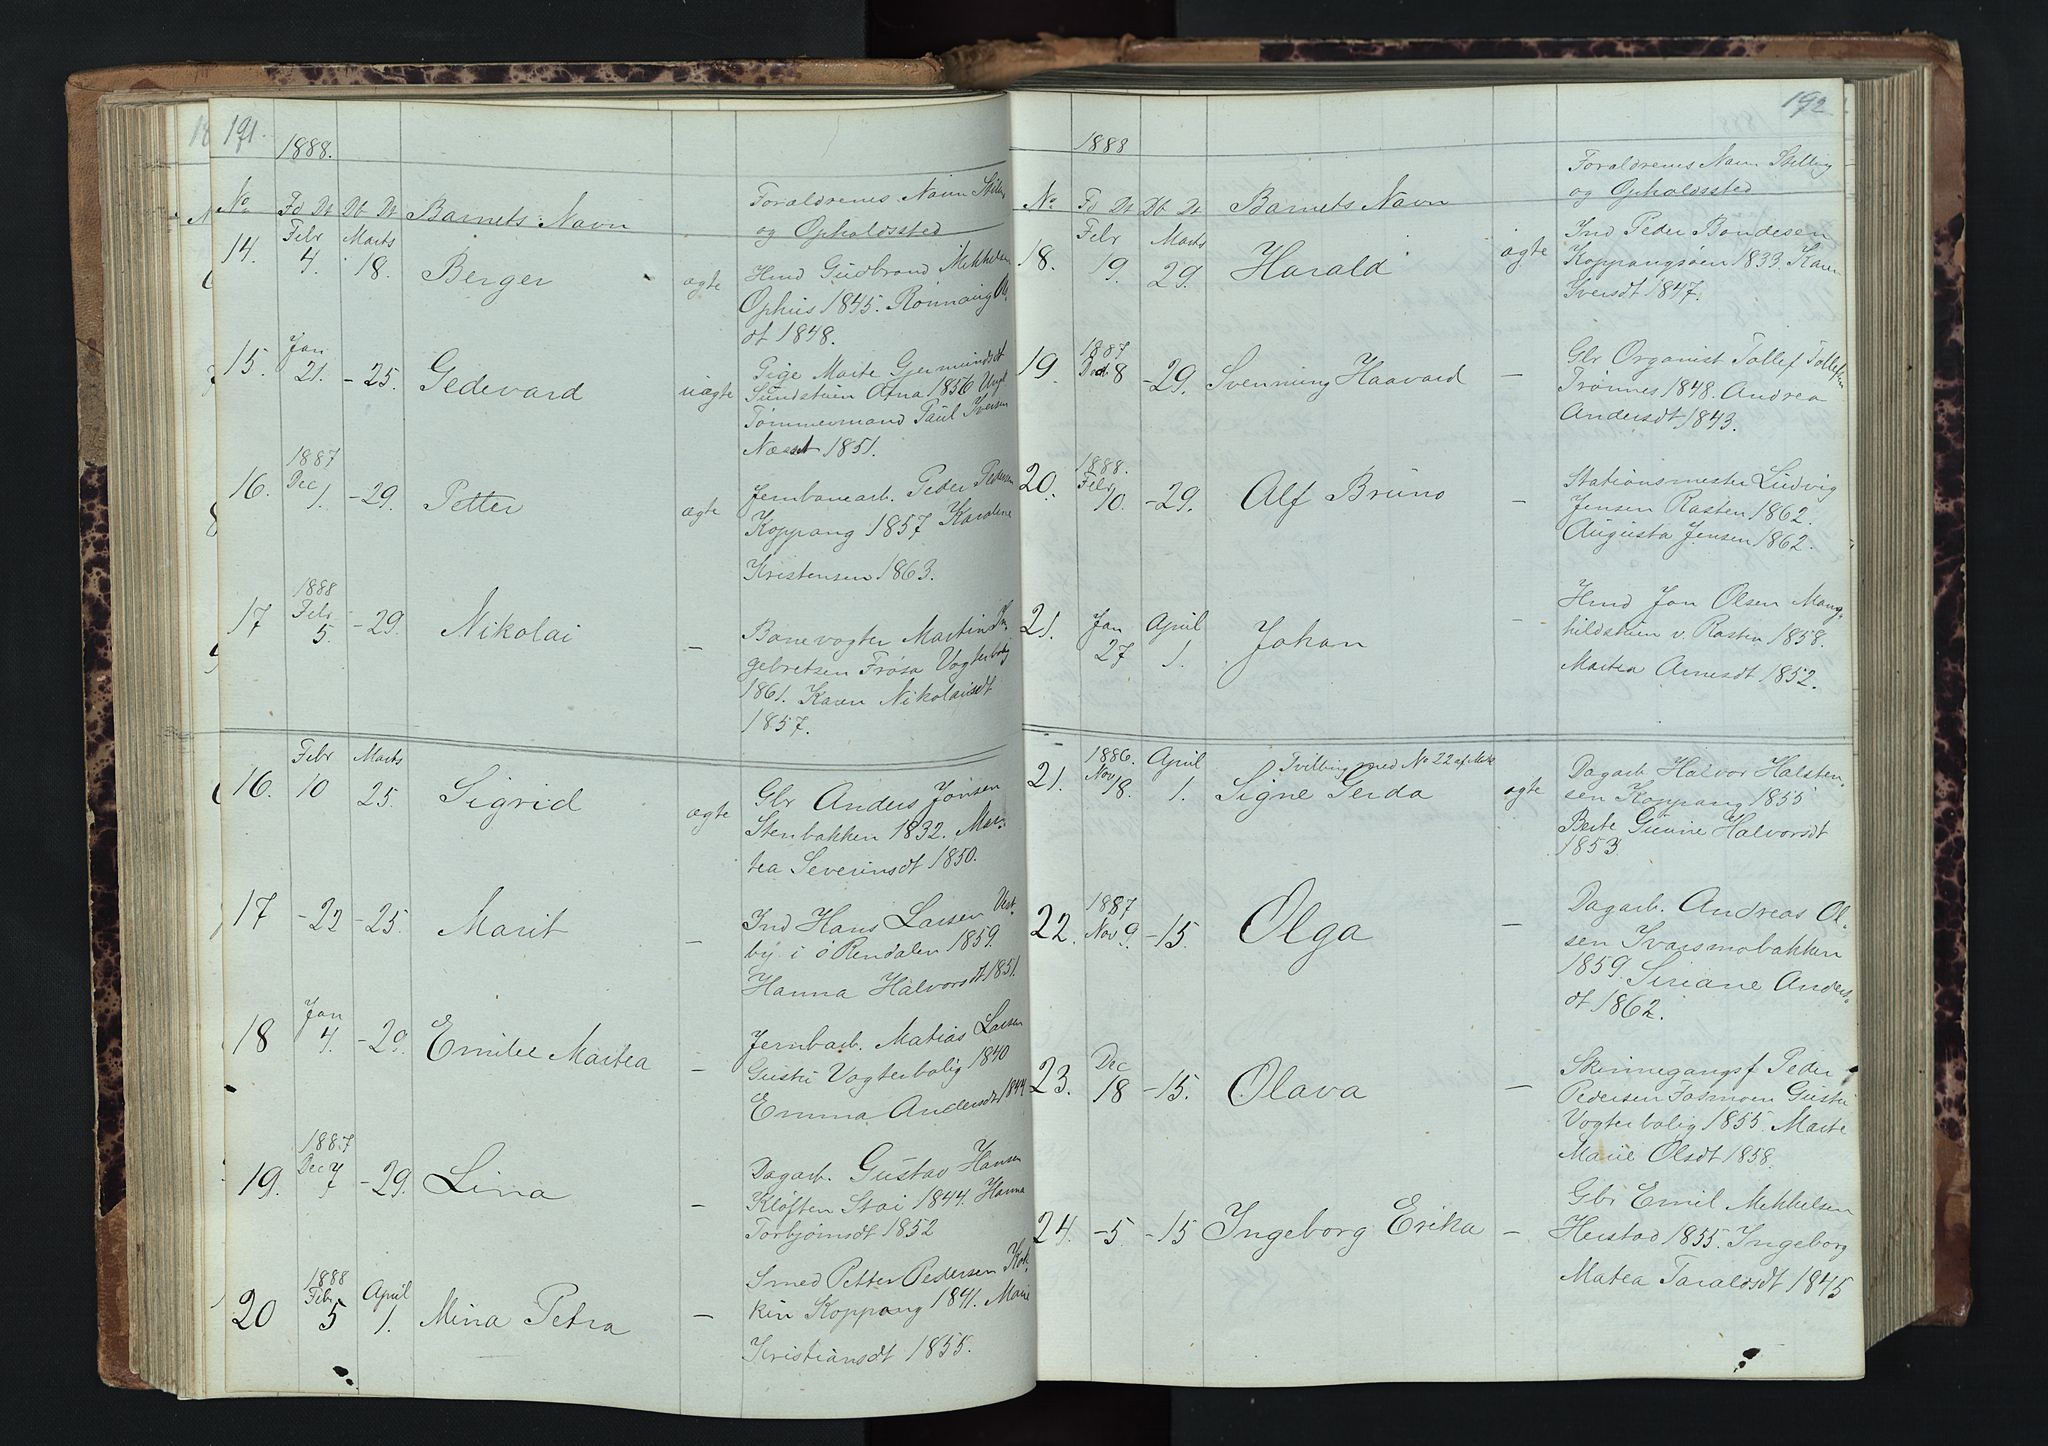 191.
1888.
No Fd Dt Db Dt Barnets Navn
Forældrenes Navn
og Opholdssted
14. Febr 4. Marts 18. Berger ægte
Gudbrand Mikkelsen
Ophus 1845. Rønnaug
dt 1848.
15. Jan 21. -25. Gedevard uægte
Pige Marte Germundsdt
Sundstuen Atna 1856 Ungk
Tømmermand Paul Iversen
Næsset 1851.
16. 1887 Dec 1. -29. Petter ægte
Jernbanearb. Peder Pedersen
Koppang 1857 Karoline
Kristensen 1863.
17 1888 Febr 5. -29. Nikolai -
Banevogter Martin In-
gebretsen Frøsa Vogterbolig
1861. Karen Nikolaisdt
1857.
16. Febr 10 Marts 25. Sigrid ægte
Gbr Anders Jonsen
Stenbakken 1832. Mar-
tea Severinsdt 1850.
17 -22 -25. Marit -
Ind Hans Larsen Vest-
by i ø Rendalen 1859.
Hanna Halvorsdt 1851.
18 Jan 4. -29. Emilie Martea -
Jernbarb. Matias Larsen
Gustu Vogterbolig 1840
Emma Andersdt 1844
19. 1887 Dec 7 -29. Lina -
Dagarb. Gustav Hansen
Kløften Stai 1844. Hanna
Torbjørnsdt 1852
20 1888 Febr 5 April 1. Mina Petra -
Smed Petter Pedersen Kok-
kin Koppang 1841. Marie
Kristiansdt 1855.
192
1888
No Fd Dt Db Dt Barnets Navn
Forældrenes Navn Stilling
og Opholdssted
18. Febr 19. Marts 29. Harald ægte
Ind Peder Bondesen
Koppangsøen 1833. Karen
Iversdt 1847.
19. 1887 Dec 8 -29. Svenning Haavard -
Gbr Organist Tollef Tollefsen
Trønnes 1848. Andrea
Andersdt 1843.
20. 1888. Febr 10. -29. Alf Bruno -
Stationsmester Ludvig
Jensen Rasten 1862.
Augusta Jensen 1862.
21. Jan 27 April 1. Johan -
Hmd Jon Olsen Mang-
hildstuen v. Rasten 1858.
Martea Arnesdt 1852.
21. 1886. Nov 18. April 1. Tvilling med No 22 af Mk
Signe Gerda ægte
Dagarb Halvor Halsten-
sen Koppang 1855
Berte Gunne Halvorsdt
1853
22. 1887 Nov 9. -15. Olga -
Dagarb. Andreas Ol-
sen Ivarsmobakken
1859. Siriane Anders-
dt 1862.
23. Dec 18 -15. Olava -
Skinnegangsf Peder
Pedersen Fosmoen Gustu
Vogterbolig 1855. Marte
Marie Olsdt 1858.
24. -5. -15 Ingeborg Erika -
Gbr Emil Mikkelsen
Heistad 1855. Ingeborg
Matea Taraldsdt 1845